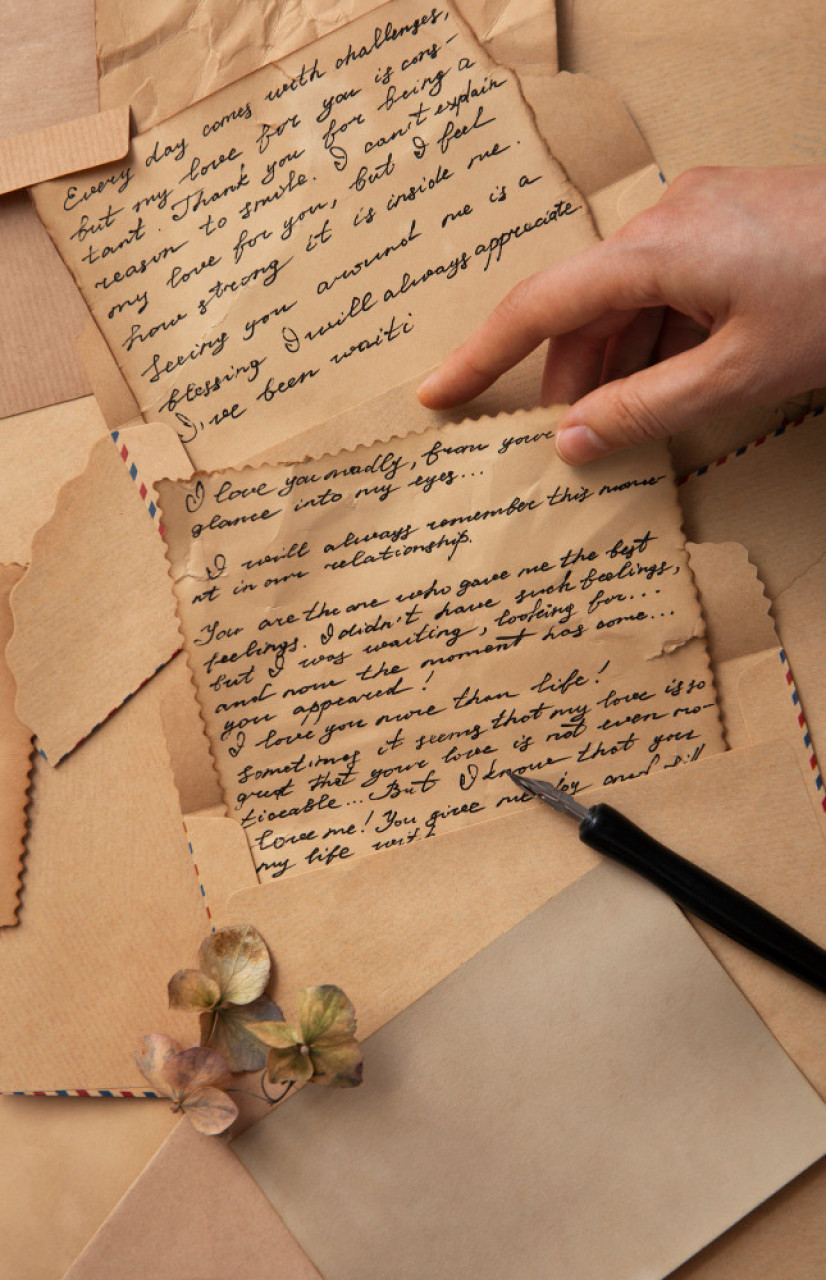 Every day comes with challenges,
but my love for you is cons-
tant. Thank you for being a
reason to smile. I can't explain
my love for you, but I feel
how strong it is inside me.
Seeing you around me is a
blessing I will always appreciate.
I've been waiti
I love you madly, from your
glance into my eyes...
I will always remember this mome-
nt in our relationship.
You are the one who gave me the best
feelings. I didn't have such feelings,
but I was waiting, looking for...
and now the moment has come...
you appeared!
I love you more than life!
Sometimes it seems that my love is so
great that your love is not even no-
ticeable... But I know that you
love me! You give me joy and
my life with